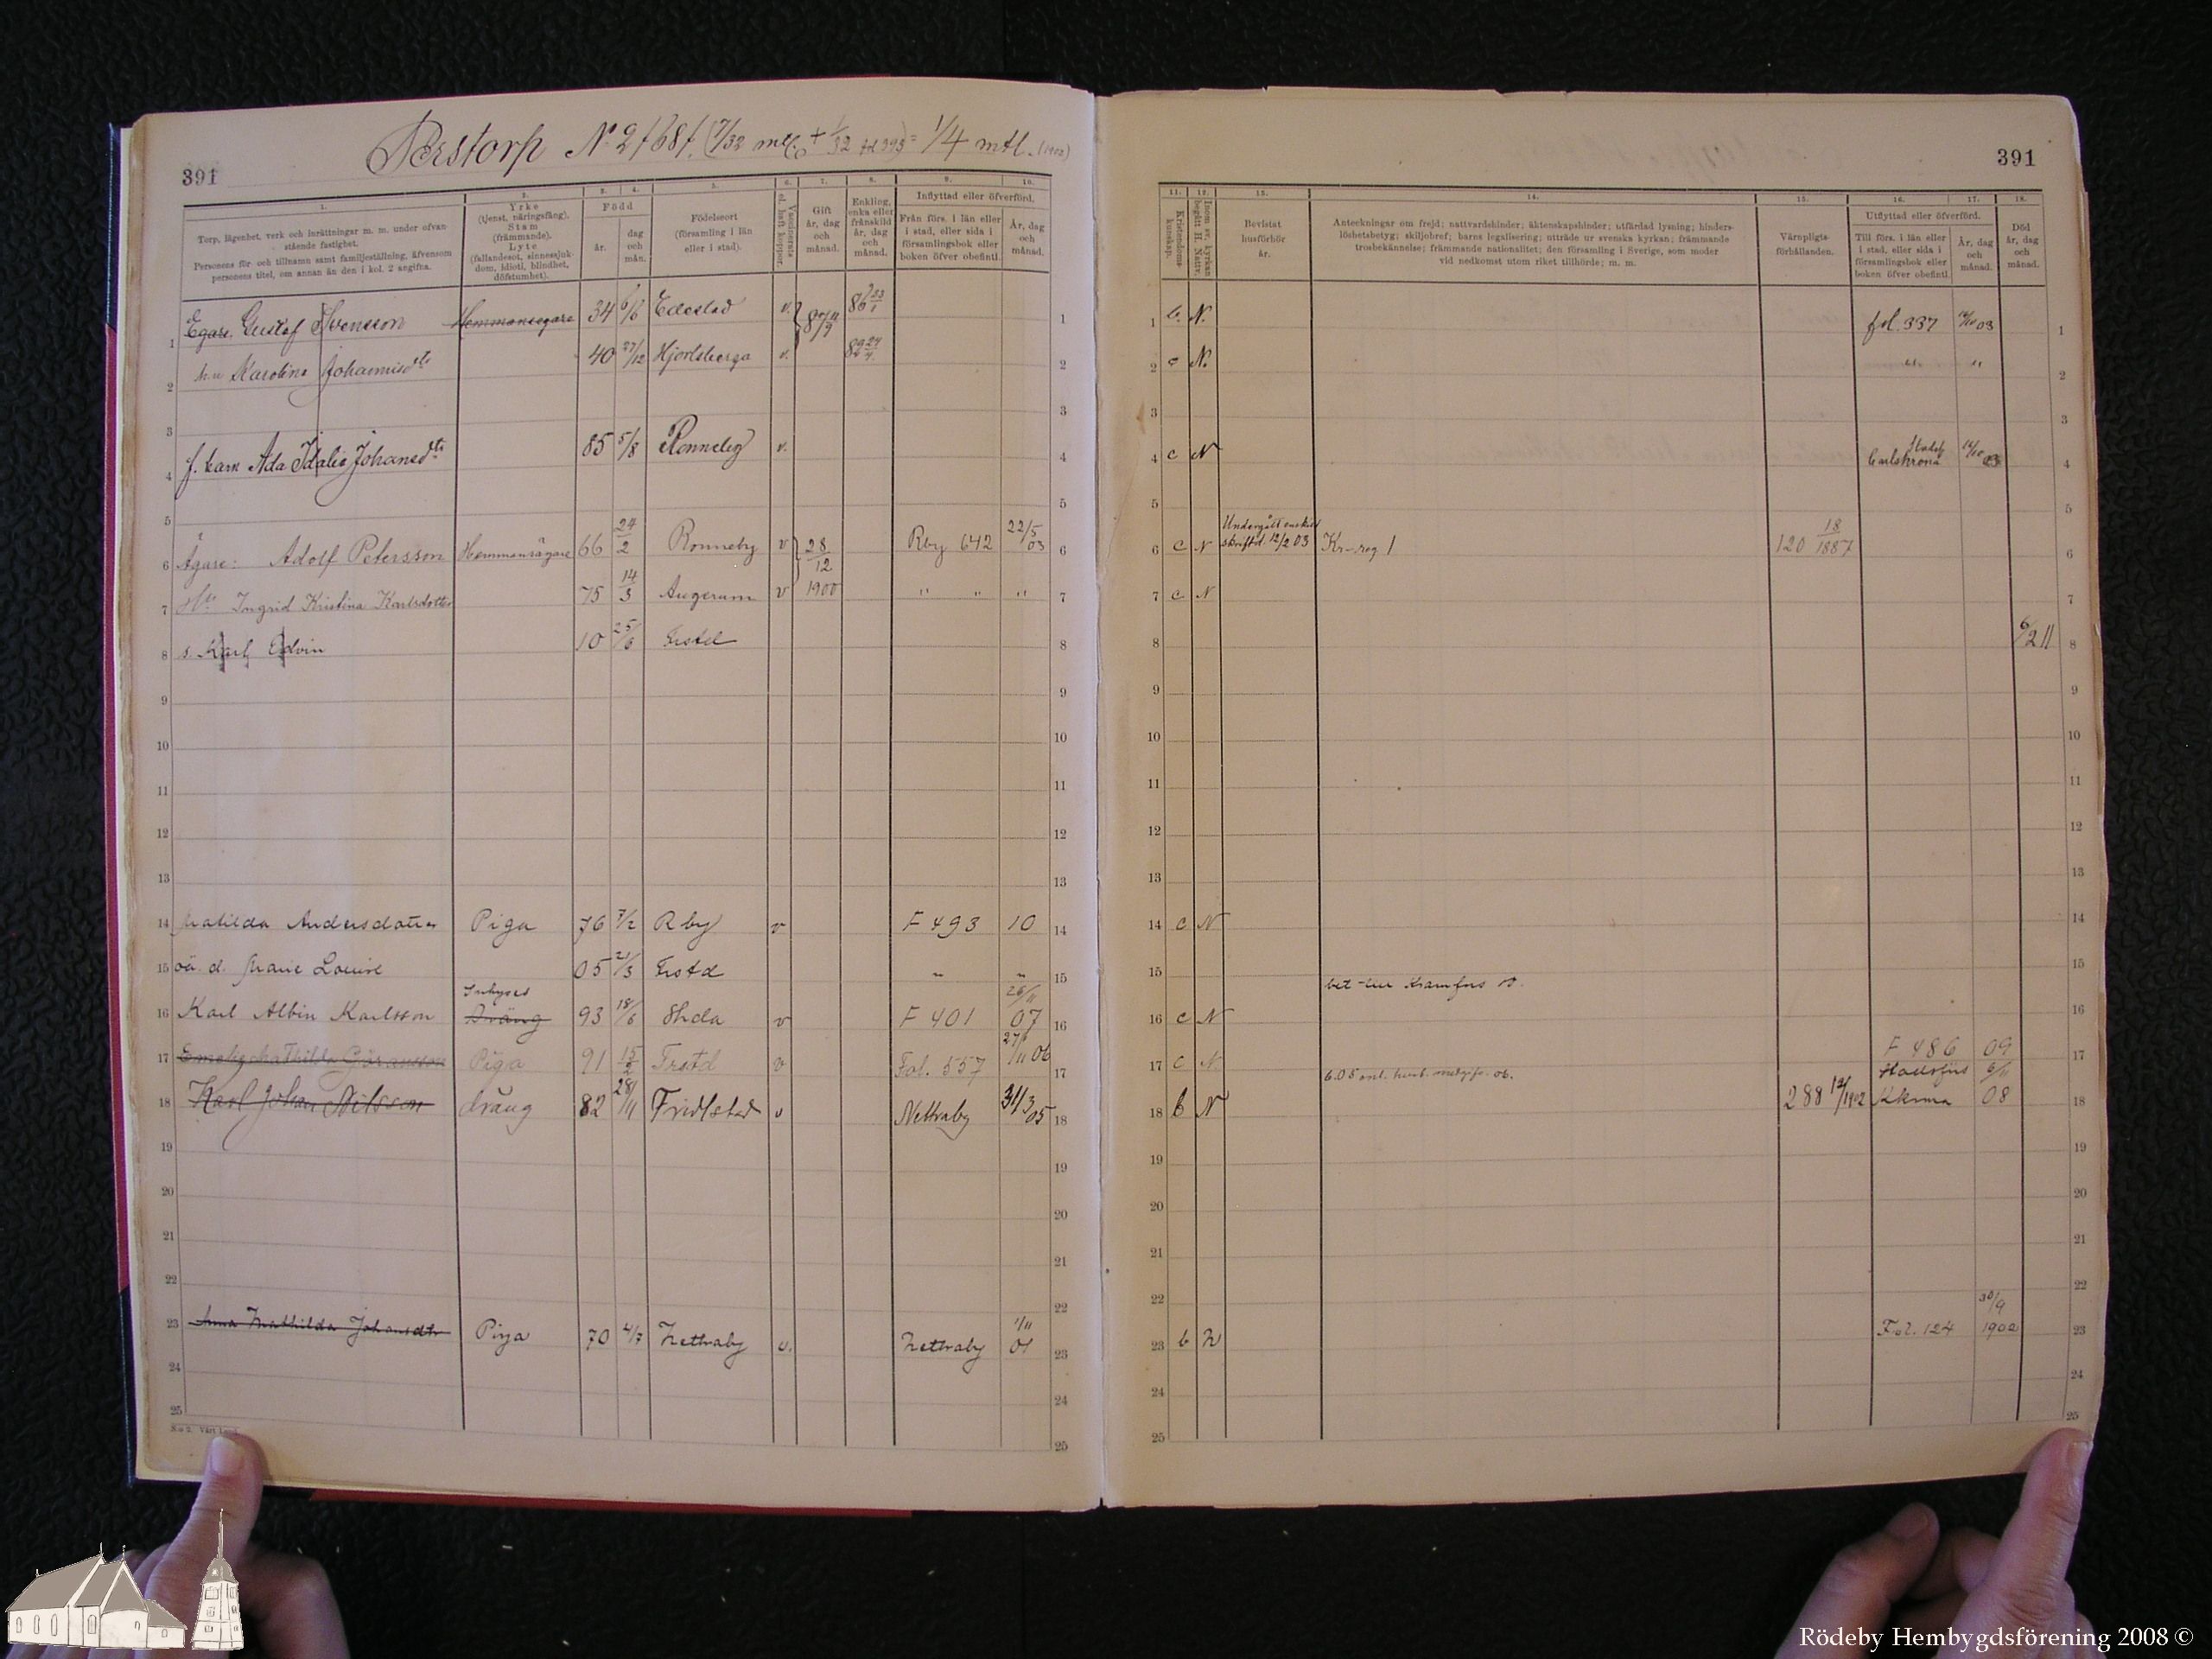 391
Perstorp No 2 (7/32 mtl. + 1/32 fol 393) = 1/4 mtl. (1902)
1. 2. 3. 4. 5. 6. 7. 8. 9. 10.
Torp, lägenhet, verk och inrättningar m. m. under ofvanstående fastighet.
Personens för- och tillnamn samt familjeställning, äfvensom personens titel, om annan än den i kol. 2 angifna.
Yrke
(tjenst, näringsfång).
Stam
(främmande).
Lyte
(fallandesot, sinnessjukdom, idioti, blindhet, döfstumhet).
Född
år.
dag och mån.
Födelseort
(församling i län eller i stad).
Vaccinerats el. haft koppor.
Gift
år, dag och månad.
Enkling, enka eller frånskild år, dag och månad.
Inflyttad eller öfverförd.
Från förs. i län eller i stad, eller sida i församlingsbok eller boken öfver obefintl.
År, dag och månad.
1 Egare. Gustaf Svensson Hemmansegare 34 6/6 Edestad v. 86 23/1 1
2 h.u Karolina Johannisdtr 40 27/12 Hjortsberga v. 89 24/4 2
3 3
4 f. barn Ada Idalia Johansdtr 85 5/8 Ronneby v. 4
5 5
6 Ägare: Adolf Petersson Hemmansägare 66 24/2 Ronneby v 28/12 1900 Rby 642 22/5 03 6
7 Hu Ingrid Kristina Karlsdotter 75 14/3 Augerum v " " " 7
8 s. Karl Edvin 10 25/6 Frstd 8
9 9
10 10
11 11
12 12
13 13
14 Matilda Andersdotter Piga 76 7/2 Rby v F 493 10 14
15 oä. d. Marie Louise 05 21/3 Frstd " " 15
16 Karl Albin Karlsson Inhyses Dräng 93 18/6 v F 401 26/11 07 16
17 Emely Mathilda Göransson Piga 91 15/2 Frstd v Fol. 557 27/11 06 17
18 Karl Johan Nilsson dräng 82 28/11 Fridlstad v Nettraby 31/3 05 18
19 19
20 20
21 21
22 22
23 Anna Mathilda Johansdtr Piga 70 4/7 Nettraby v. Nettraby 1/11 01 23
24 24
25 25
N:o 2. Vårt Land
391
11. 12. 13. 14. 15. 16. 17. 18.
Kristendomskunskap.
Inom sv. kyrkan begått H. Nattv.
Bevistat husförhör år.
Anteckningar om frejd; nattvardshinder; äktenskapshinder; utfärdad lysning; hinderslöshetsbetyg; skiljobref; barns legalisering; utträde ur svenska kyrkan; främmande trosbekännelse; främmande nationalitet; den församling i Sverige, som moder vid nedkomst utom riket tillhörde; m. m.
Värnpligtsförhållanden.
Utflyttad eller öfverförd.
Till förs. i län eller i stad, eller sida i församlingsbok eller boken öfver obefintl.
År, dag och månad.
Död
år, dag och månad.
1 b. N. fol. 337 03 1
2 c N. " " 2
3 3
4 c N Stadsf Carlskrona 14/10 03 4
5 5
6 c N Undergått enskild skriftd. 12/2 03 Kr-reg 1 120 18/1887 6
7 c N 7
8 6/2 11 8
9 9
10 10
11 11
12 12
13 13
14 c N 14
15 15
16 c N 16
17 c N F 486 09 17
18 b N 288 12/1902 Stadsförs Kkrona 6/11 08 18
19 19
20 20
21 21
22 22
23 b N Fol. 124 30/9 1902 23
24 24
25 25
Rödeby Hembygdsförening 2008 ©